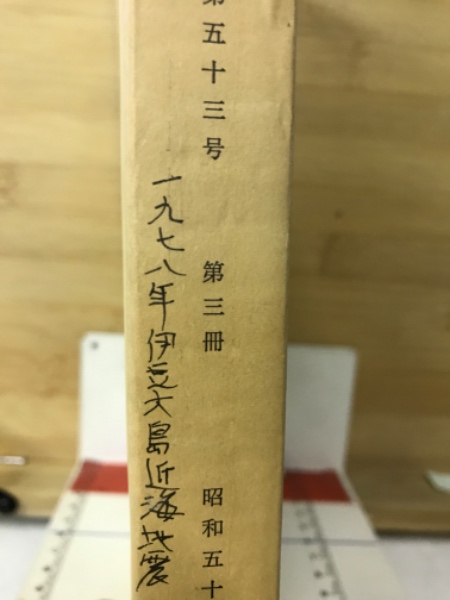 第五十三号 第三冊 昭和五十
一九七八年伊豆大島近海地震